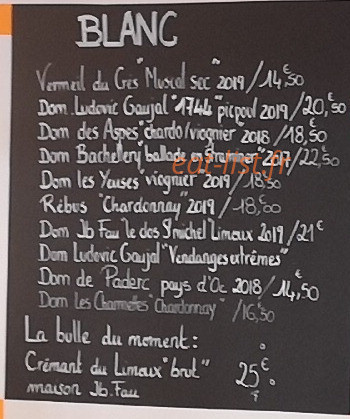 BLANC
Vermeil du Crès "Muscat sec" 2019 / 14,50€
Dom. Ludovic Gaujal "1744" picpoul 2019 / 20,50€
Dom des Aspes chardo/viognier 2018 / 18,50€
Dom Bachellery "ballade en straminer" 2017 / 22,50€
Dom les Yeuses viognier 2019 / 18,50
Rébus "Chardonnay" 2019 / 18,50€
Dom Jb Fau le dos St michel Limoux 2019 / 21€
Dom Ludovic Gaujal "Vendanges extrêmes"
Dom de Paderc pays d'Oc 2018 / 14,50€
Dom Les Charmettes "Chardonnay" / 16,50€
La bulle du moment :
Crémant du Limoux "brut" 25€
maison Jb. Fau
eat-list.fr